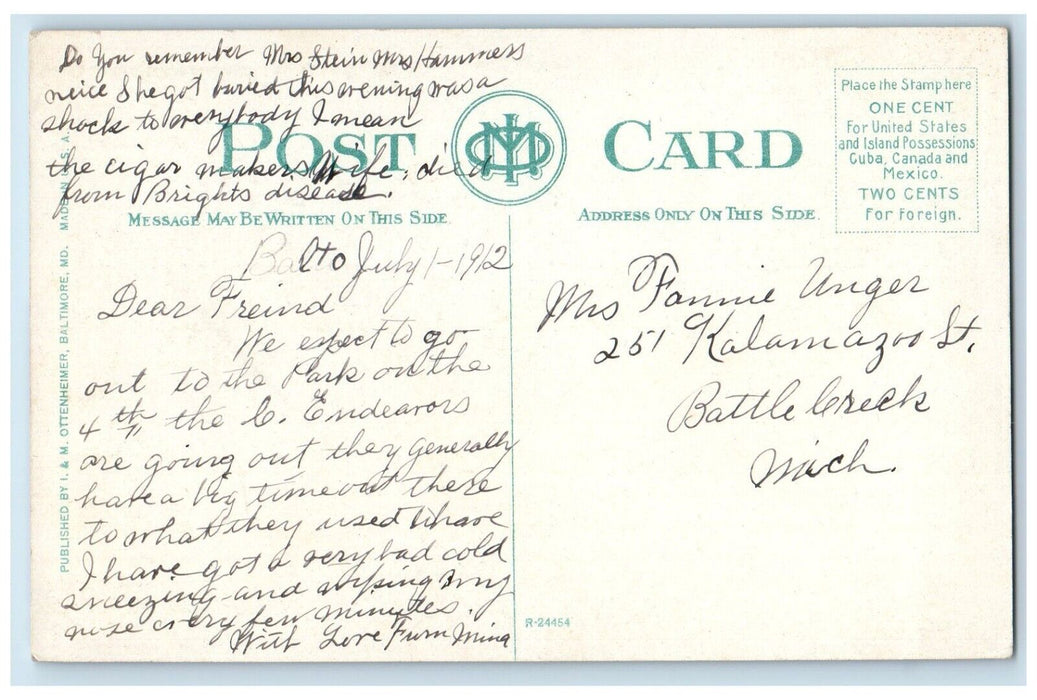 Do You remember Mrs Stein Mrs Hammers
neice She got buried this evening was a
shock to everybody I mean
the cigar makers Wife, died
from Brights disease.
POST CARD
MESSAGE MAY BE WRITTEN ON THIS SIDE.
ADDRESS ONLY ON THIS SIDE.
Place the Stamp here
ONE CENT
For United States
and Island Possessions
Cuba, Canada and
Mexico.
TWO CENTS
For Foreign.
PUBLISHED BY I. & M. OTTENHEIMER, BALTIMORE, MD. MADE IN U. S. A.
Balto July 1-1912
Dear Freind
We expect to go
out to the Park on the
4th " the C. Endeavors
are going out they generally
have a big time out there
to what they used to have
I have got a very bad cold
sneezing and wiping my
nose every few minutes.
With Love From Mina
Mrs Fannie Unger
251 Kalamazoo St.
Battle Creek
Mich.
R-24454